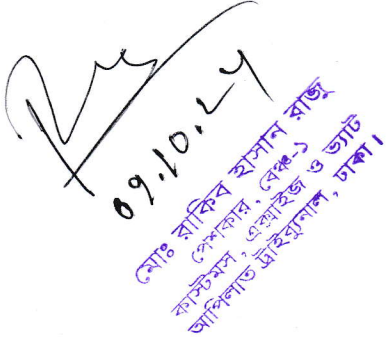 09.10.24
মোঃ রাকিব হাসান রাজু
পেশকার, বেঞ্চ-১
কাস্টমস, এক্সাইজ ও ভ্যাট
আপিলাত ট্রাইব্যুনাল, ঢাকা।